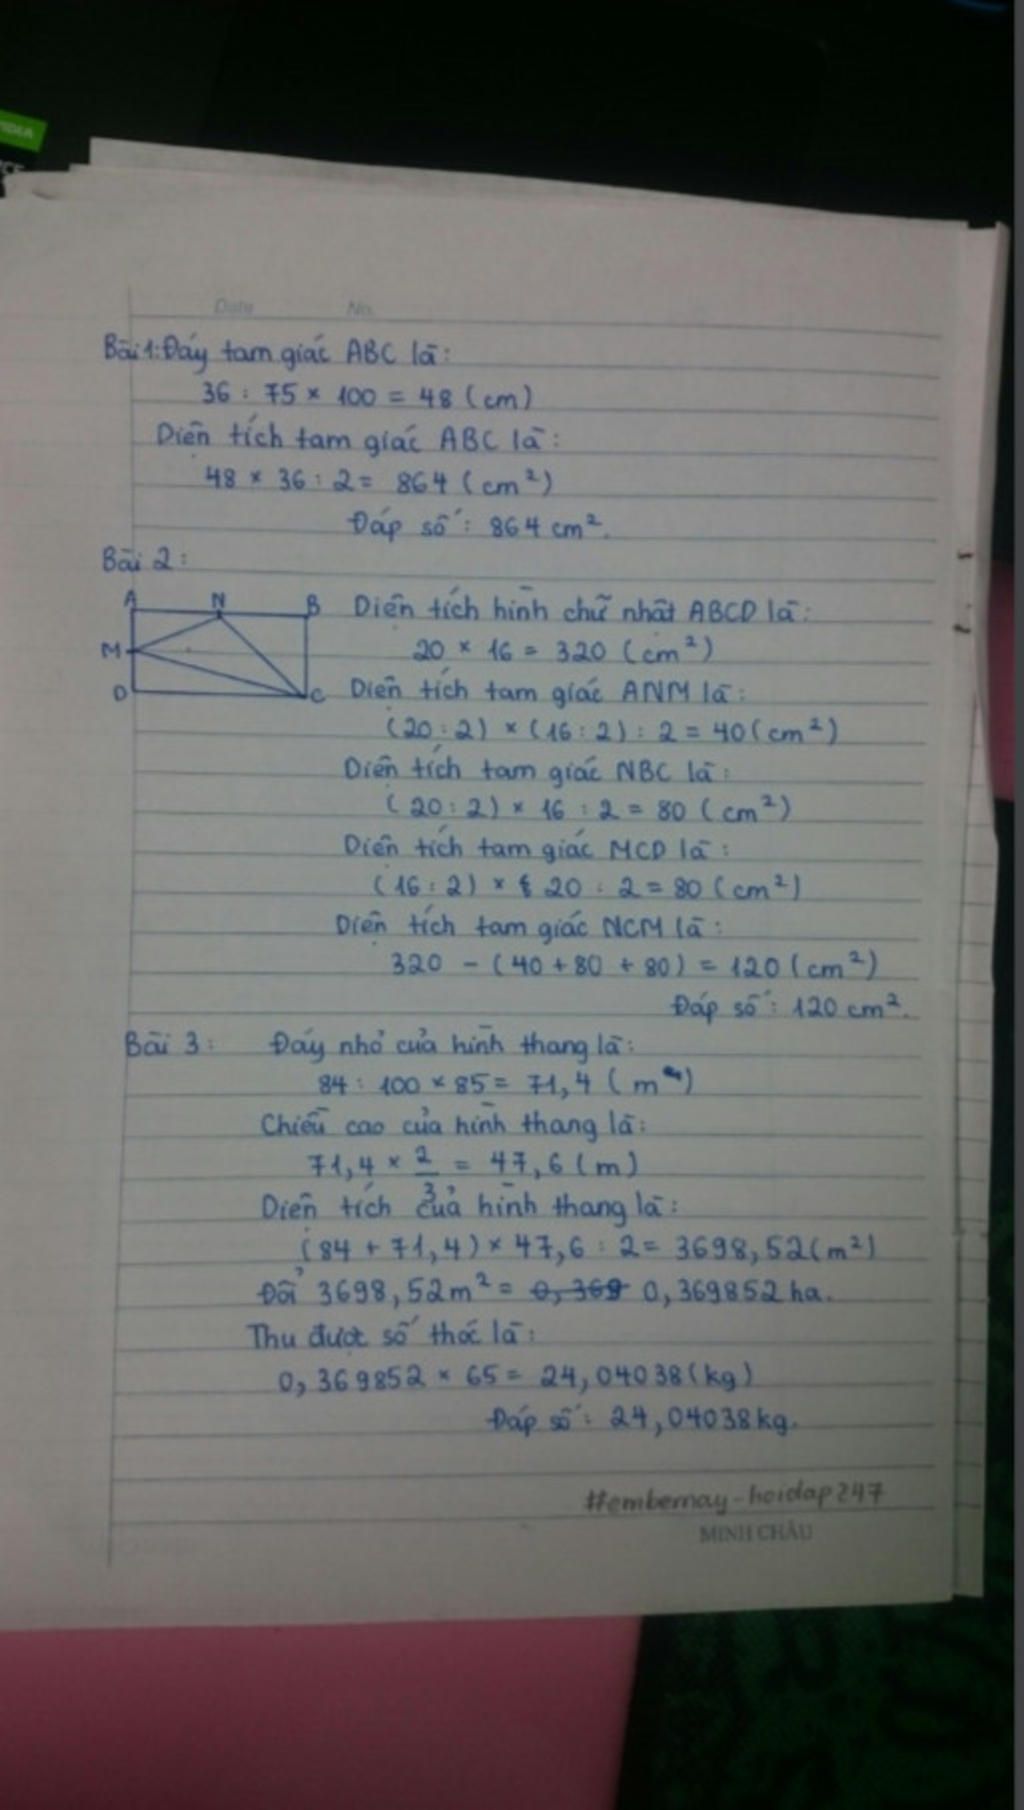 Date No.
Bài 1: Đáy tam giác ABC là:
36 : 75 × 100 = 48 (cm)
Diện tích tam giác ABC là:
48 × 36 : 2 = 864 (cm²)
Đáp số: 864 cm².
Bài 2:
A N B
M
D C
Diện tích hình chữ nhật ABCD là:
20 × 16 = 320 (cm²)
Diện tích tam giác ANM là:
(20 : 2) × (16 : 2) : 2 = 40 (cm²)
Diện tích tam giác NBC là:
(20 : 2) × 16 : 2 = 80 (cm²)
Diện tích tam giác MCD là:
(16 : 2) × 20 : 2 = 80 (cm²)
Diện tích tam giác NCM là:
320 - (40 + 80 + 80) = 120 (cm²)
Đáp số: 120 cm².
Bài 3: Đáy nhỏ của hình thang là:
84 : 100 × 85 = 71,4 (m)
Chiều cao của hình thang là:
71,4 × 2/3 = 47,6 (m)
Diện tích của hình thang là:
(84 + 71,4) × 47,6 : 2 = 3698,52 (m²)
Đổi 3698,52 m² = 0,369 0,369852 ha.
Thu được số thóc là:
0,369852 × 65 = 24,04038 (kg)
Đáp số: 24,04038 kg.
#embemay-hoidap247
MINH CHÂU